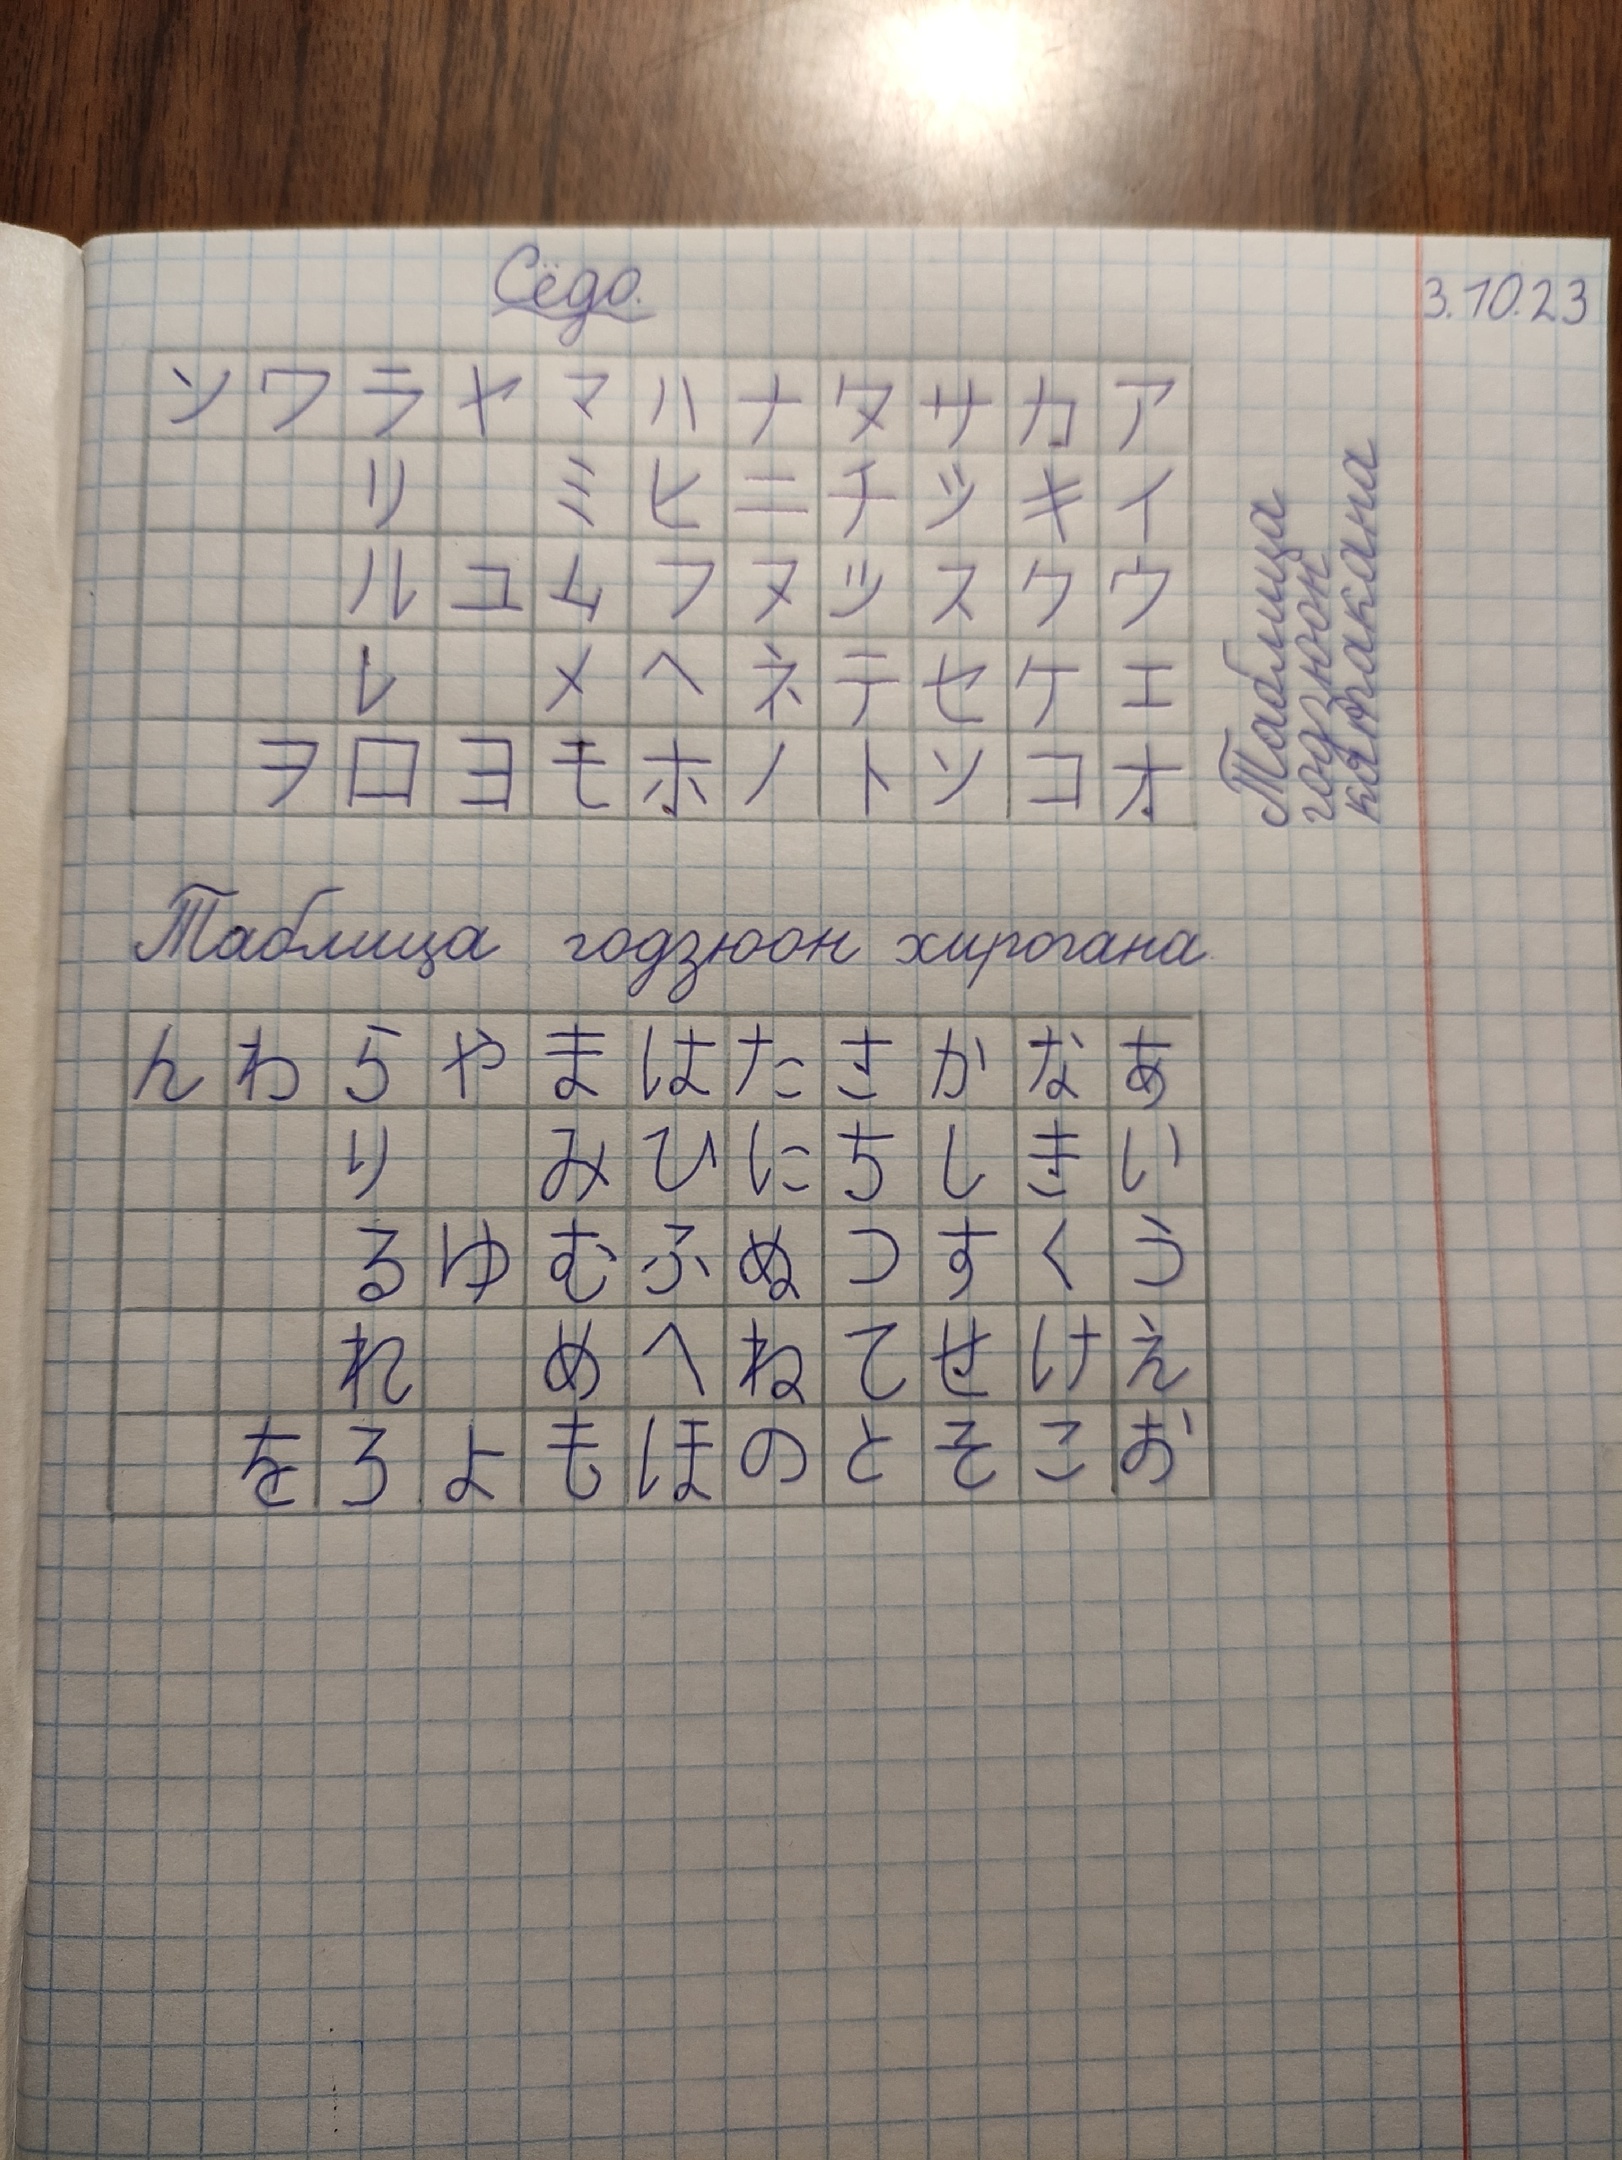 Сёдо.
3.10.23
ソ ワ ラ ヤ マ ハ ナ タ サ カ ア
リ ミ ヒ ニ チ ツ キ イ
ル ユ ム フ ヌ ツ ス ク ウ
レ メ ヘ ネ テ セ ケ エ
ヲ ロ ヨ モ ホ ノ ト ソ コ オ
Таблица
годзюон
катакана
Таблица годзюон хирогана
ん わ ら や ま は た さ か な あ
り み ひ に ち し き い
る ゆ む ふ ぬ つ す く う
れ め へ ね て せ け え
を ろ よ も ほ の と そ こ お